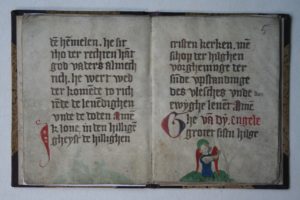 đē hēmelen. he sit
tho der rechten hāt
god vaders almech
tich. he wert wed
der komēde to rich
tēde de leuēdighen
vnde de doten Amē
k loue in den hilligē
gheyst de hillighen
cristen kerken. mē
schop der hilghen
vorgheuinge der
sūde vpstandinge
des vlesches vnde
ewyghe leuent Amē
Ghe vn dy engele
groter sistu hilge